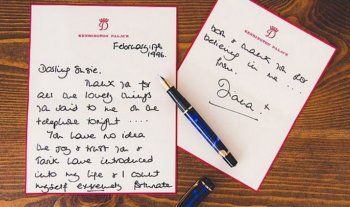 D
KENSINGTON PALACE
February 17th
1996.
Darling Susie,
Thank you for
all the lovely things
you said to me on the
telephone tonight ....
You have no idea
the joy & trust you &
Tarik have introduced
into my life & I count
myself extremely fortunate
D
KENSINGTON PALACE
& thank you for
believing in me ...
from,
Diana x